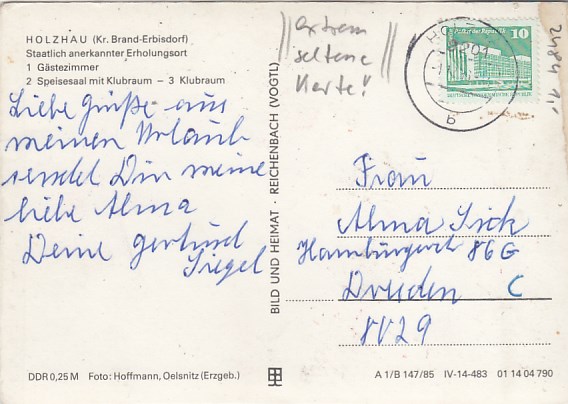 HOLZHAU (Kr. Brand-Erbisdorf)
Staatlich anerkannter Erholungsort
1 Gästezimmer
2 Speisesaal mit Klubraum – 3 Klubraum
Liebe Grüße aus
meinem Urlaub
sendet Dir meine
liebe Alma
Deine Gertrud
Siegel
DDR 0,25 M Foto: Hoffmann, Oelsnitz (Erzgeb.)
BILD UND HEIMAT · REICHENBACH (VOGTL)
extrem
seltene
Karte!
9201
b
Palast der Republik 10
2484 1,-
Frau
Alma
86 G
Dresden C
8029
A 1/B 147/85 IV-14-483 01 14 04 790